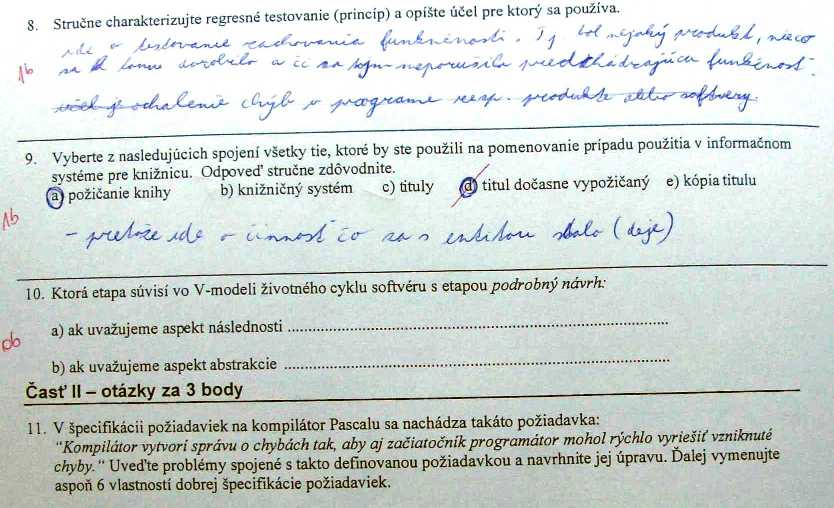 8. Stručne charakterizujte regresné testovanie (princíp) a opíšte účel pre ktorý sa používa.
ide o testovanie zachovania funkčnosti. Tj. bol nejaký produkt, niečo
1b
sa k tomu dorobilo a či sa tým neporušila predchádzajúca funkčnosť.
účel je odhalenie chýb v programe resp. produkte alebo softvery.
9. Vyberte z nasledujúcich spojení všetky tie, ktoré by ste použili na pomenovanie prípadu použitia v informačnom
systéme pre knižnicu. Odpoveď stručne zdôvodnite.
a) požičanie knihy b) knižničný systém c) tituly d) titul dočasne vypožičaný e) kópia titulu
1b
- pretože ide o činnosť čo sa s entitou stalo (deje)
10. Ktorá etapa súvisí vo V-modeli životného cyklu softvéru s etapou podrobný návrh:
a) ak uvažujeme aspekt následnosti
0b
b) ak uvažujeme aspekt abstrakcie
Časť II – otázky za 3 body
11. V špecifikácii požiadaviek na kompilátor Pascalu sa nachádza takáto požiadavka:
"Kompilátor vytvorí správu o chybách tak, aby aj začiatočník programátor mohol rýchlo vyriešiť vzniknuté
chyby." Uveďte problémy spojené s takto definovanou požiadavkou a navrhnite jej úpravu. Ďalej vymenujte
aspoň 6 vlastností dobrej špecifikácie požiadaviek.